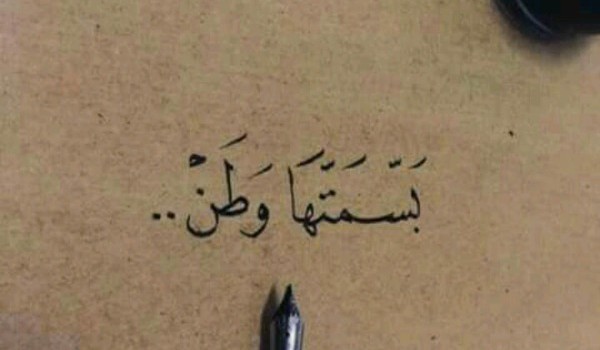 بَسَّمَتَّهَا وَطَنْ..